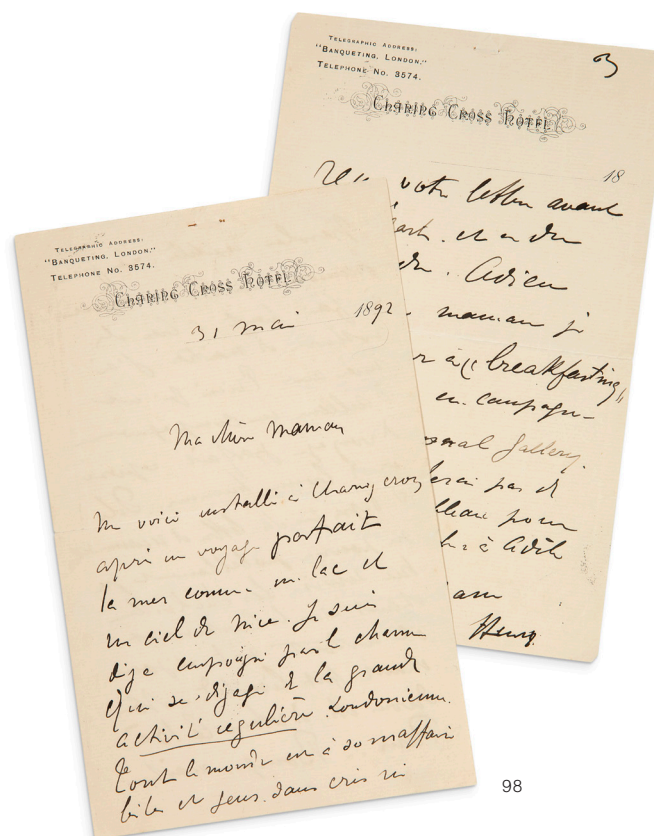 TELEGRAPHIC ADDRESS:
"BANQUETING, LONDON."
TELEPHONE No. 3574.
CHARING CROSS HOTEL
31 mai 1892
Ma chère maman
Me voici installé à Charing cross
après un voyage parfait
la mer comme un lac et
un ciel de Nice. Je suis
déjà empoigné par le charme
qui se dégage de la grande
activité régulière Londonienne.
Tout le monde est à son affaire
bêtes et gens sans cris ni
TELEGRAPHIC ADDRESS:
"BANQUETING, LONDON."
TELEPHONE No. 3574.
3
CHARING CROSS HOTEL
18
votre lettre avant
et en
Adieu
maman je
"breakfasting"
en campagn-
gallery
pas de
pour
à Adèle
Henry.
98